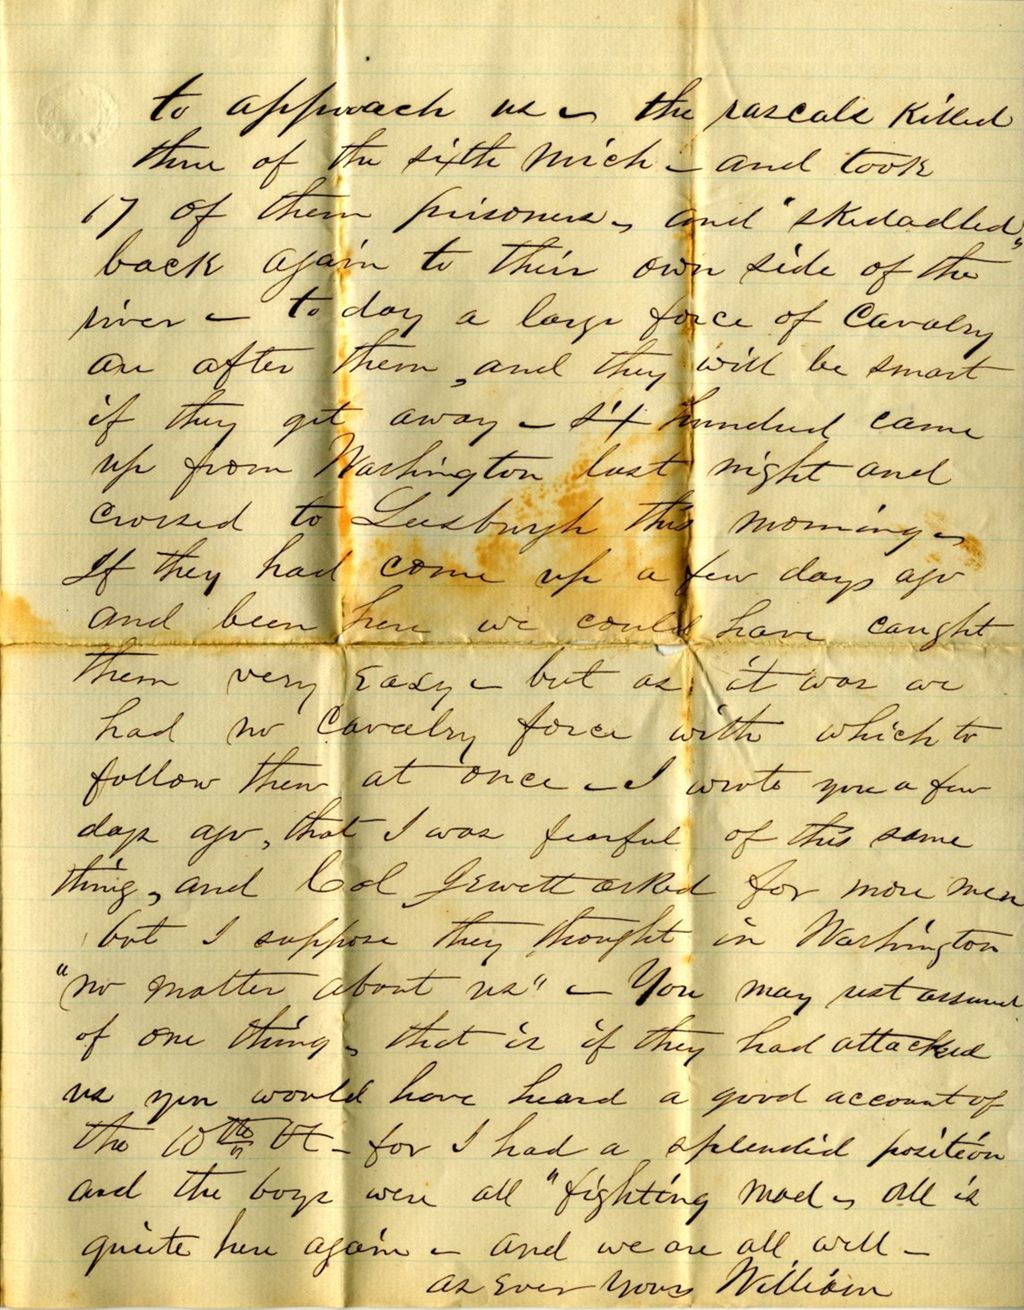 to approach us – the rascals killed
three of the sixth Mich – and took
17 of them prisoners, and "skedadled"
back again to their own side of the
river – to day a large force of Cavalry
are after them, and they will be smart
if they get away – six hundred came
up from Washington last night and
crossed to Leesburgh this morning –
If they had come up a few days ago
and been here we could have caught
them very easy – but as it was we
had no Cavalry force with which to
follow them at once – I wrote you a few
days ago, that I was fearful of this same
thing, and Col Jewett asked for more men
but I suppose they thought in Washington
"no matter about us" – You may rest assured
of one thing, that is if they had attacked
us you would have heard a good account of
the 10th Vt – for I had a splendid position
and the boys were all "fighting mad – All is
quiite here again – and we are all well –
as Ever Yours William